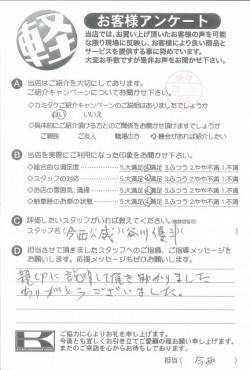 軽
お客様アンケート
当店では、お買い上げ頂いたお客様の声を可能
な限り現場に反映し、お客様により良い商品と
サービスを提供する事に努めています。
大変お手数ですが是非お声をお聞かせ下さい。
A 当店はご紹介を大切にしております。
ご紹介キャンペーンについてお聞かせ下さい。
◇カミタウご紹介キャンペーンのご説明はありましたでしょうか
はい いいえ
◇具体的にご紹介頂ける方とのご関係をお聞かせ頂けますでしょうか
ご親戚 ご友人 職場の方 機会があれば紹介したい
B 当店を実際にご利用になった印象をお聞かせ下さい。
◇総合的な満足度 5.大満足 4.満足 3.ふつう 2.やや不満 1.不満
◇スタッフの対応 5.大満足 4.満足 3.ふつう 2.やや不満 1.不満
◇お店の雰囲気、清掃 5.大満足 4.満足 3.ふつう 2.やや不満 1.不満
◇納車時のお車の状態 5.大満足 4.満足 3.ふつう 2.やや不満 1.不満
C 評価したいスタッフがいれば教えてください。
スタッフ名(今西公威)(谷川優斗)
D 担当させて頂きましたスタッフへのご指摘、ご指導メッセージを
お願いします。応援メッセージもぜひお願いします。
親切に説明して頂き助かりました
ありがとうございました。
K
ご協力に心よりお礼を申し上げます。
今後とも宜しくお引き立てご愛顧の程お願い申し上げます。
またのご来店を心からお待ちしております。
担当( 今西 )